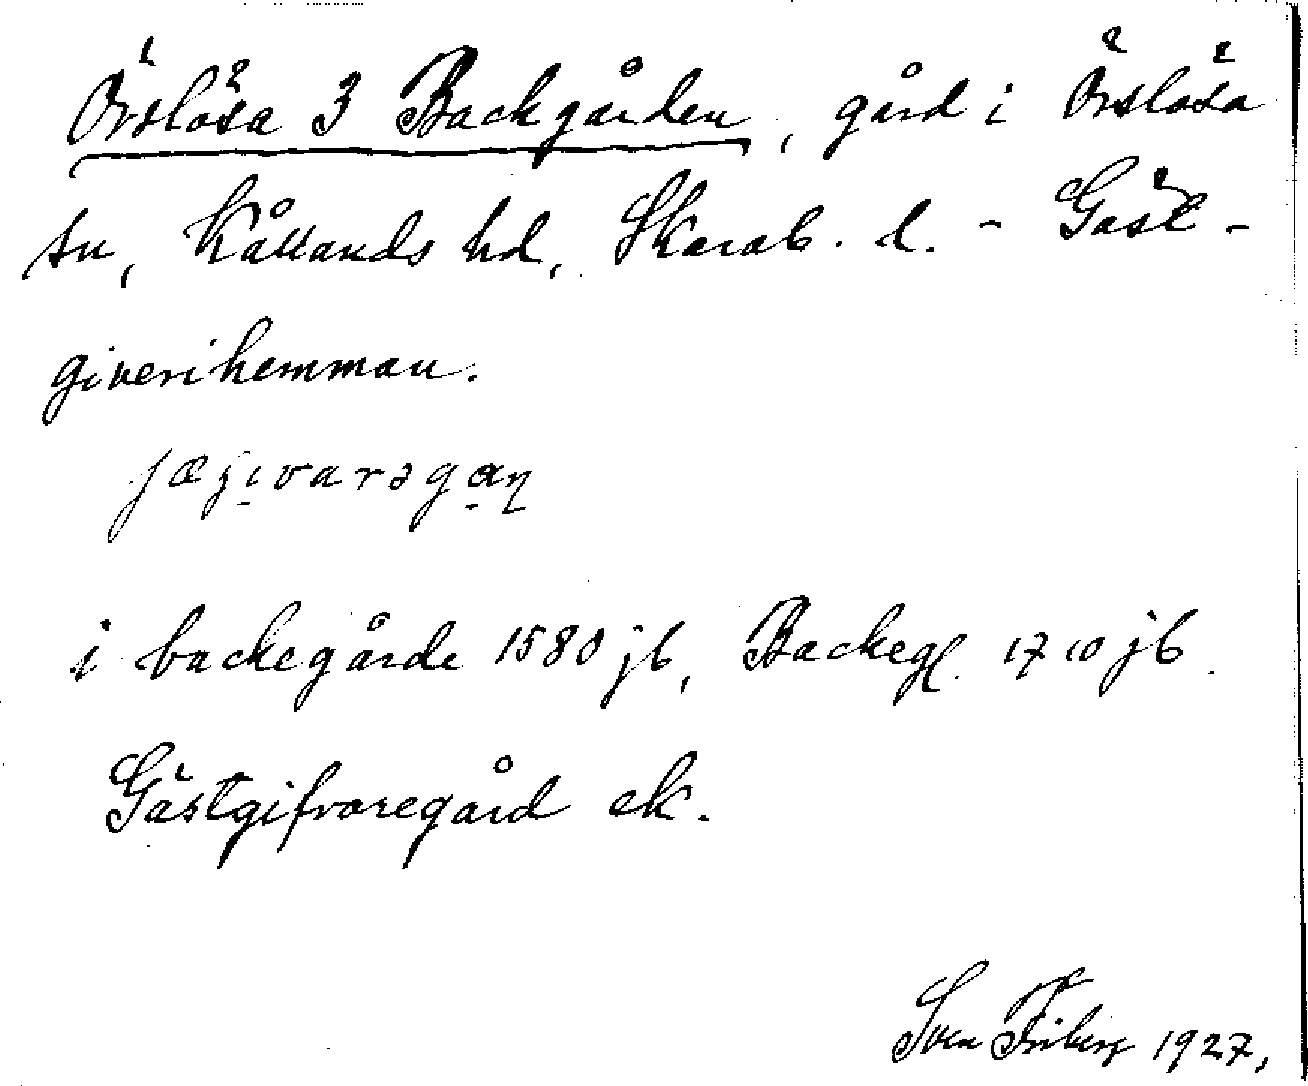 Örslösa 3 Backgården, gård i Örslösa
sn, Kållands hd, Skarab. l. - Gäst-
giverihemman.
i backegårde 1580 jb, Backeg. 1710 jb.
Gästgifvaregård ek.
Sven Friberg 1927,